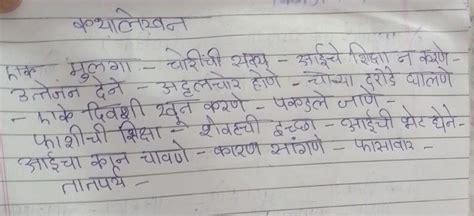 कथालेखन
एक मुलगा - चोरीची सवय - आईचे शिक्षा न करणे -
उत्तेजन देने - अट्टलचोर होणे - चोऱ्या दरोडे घालणे
- एके दिवशी खून करणे - पकडले जाणे -
फाशीची शिक्षा - शेवटची इच्छा - आईची भेट घेने -
आईचा कान चावणे - कारण सांगणे - फासावर -
तात्पर्य -